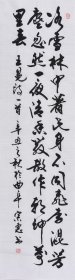 冰雪林中著此身不同桃李混芳
塵忽然一夜清香發散作乾坤萬
里春 王冕诗一首 辛丑之秋於曲阜